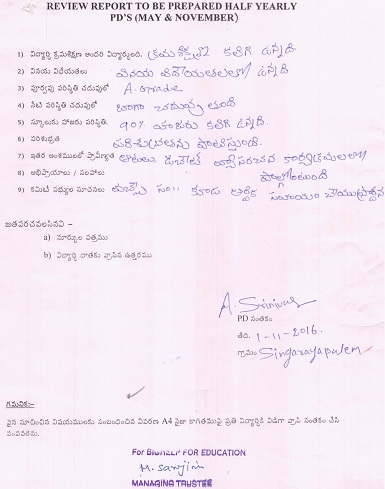 REVIEW REPORT TO BE PREPARED HALF YEARLY
PD'S (MAY & NOVEMBER)
1) విద్యార్థి క్రమశిక్షణ అందరి విద్యార్థులది. క్రమశిక్షణ కలిగి ఉన్నది
2) వినయ విధేయతలు వినయ విధేయతలతో ఉన్నది
3) పూర్వపు పరిస్థితి చదువులో A. Grade
4) నేటి పరిస్థితి చదువులో బాగా చదువుతుంది
5) స్కూలుకు హాజరు పరిస్థితి. 90% హాజరు కలిగి ఉన్నది.
6) పరిశుభ్రత పరిశుభ్రతను పాటిస్తుంది.
7) ఇతర అంశములలో ప్రావీణ్యత ఆటలు, వ్యాసరచన కార్యక్రమాలలో
8) అభిప్రాయాలు / సలహాలు పాల్గొంటుంది
9) కమిటీ సభ్యుల సూచనలు కూడ ఆర్థిక సహాయం చేయు ప్రార్థన
జతపరచవలసినవి -
a) మార్కుల పత్రము
b) విద్యార్థి దాతకు వ్రాసిన ఉత్తరము
A. Srinivas
PD సంతకం
తేది. 1-11-2016.
గ్రామం Singarayapalem
గమనిక:-
పైన సూచించిన విషయములకు సంబంధించిన వివరణ A4 సైజు కాగితముపై ప్రతి విద్యార్థికి విడిగా వ్రాసి సంతకం చేసి
పంపవలెను.
For BIGHELP FOR EDUCATION
M. Sanjini
MANAGING TRUSTEE